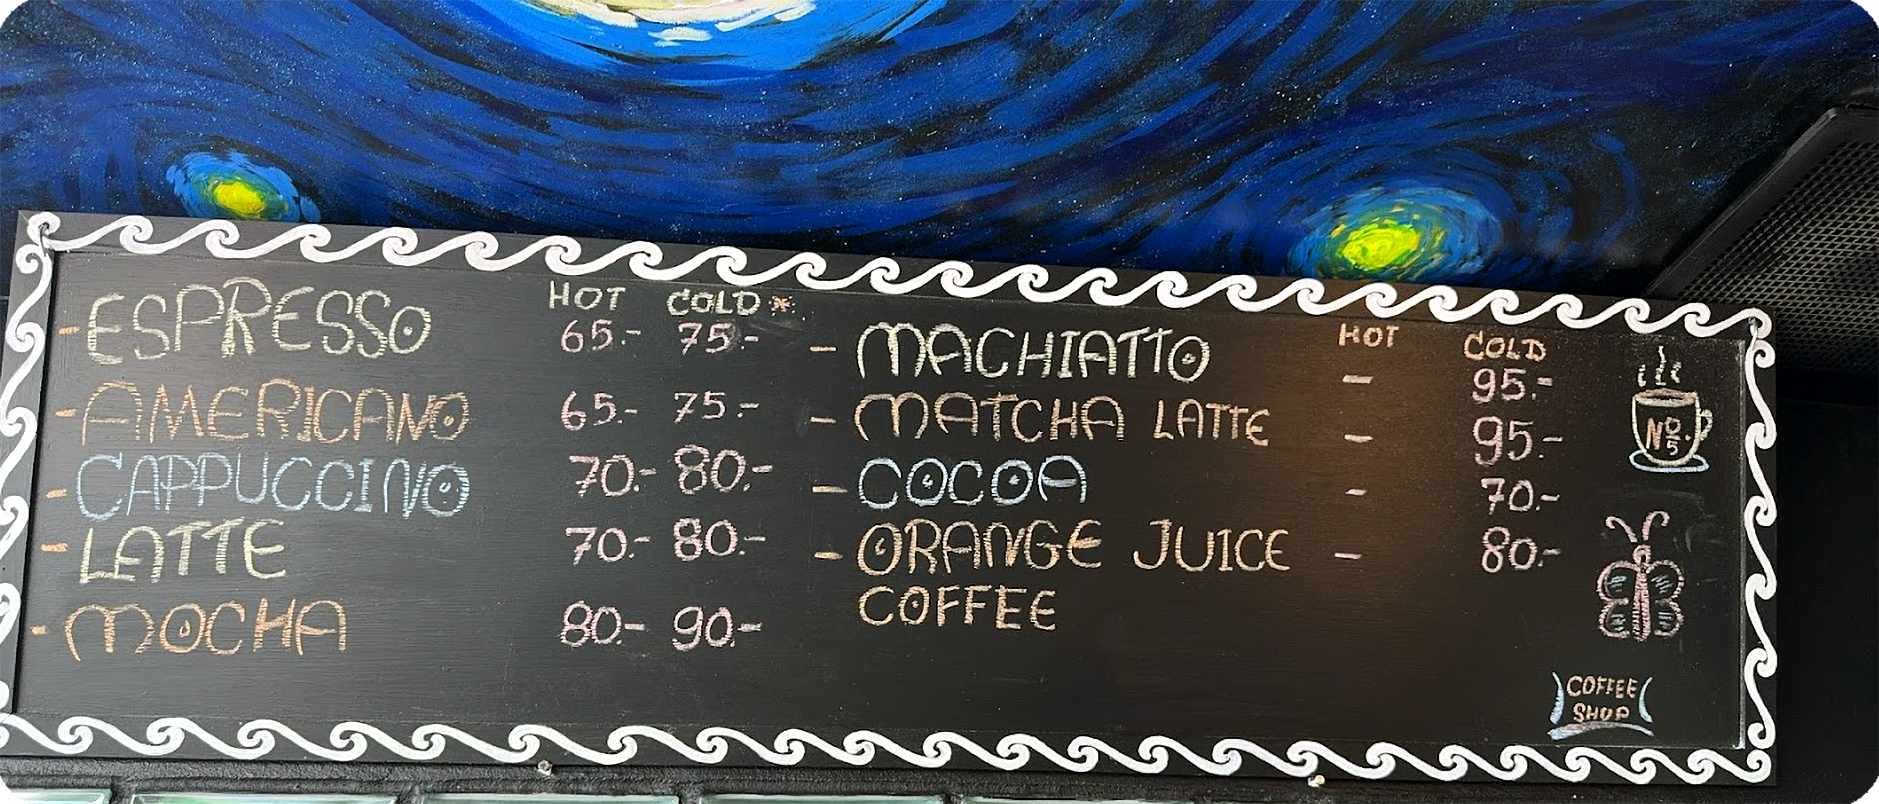 HOT COLD*
ESPRESSO 65.- 75.-
- AMERICANO 65.- 75.-
- CAPPUCCINO 70.- 80.-
- LATTE 70.- 80.-
- MOCHA 80.- 90.-
HOT COLD
- MACHIATTO - 95.-
- MATCHA LATTE - 95.-
- COCOA - 70.-
- ORANGE JUICE - 80.-
COFFEE
NO.
5
COFFEE
SHOP